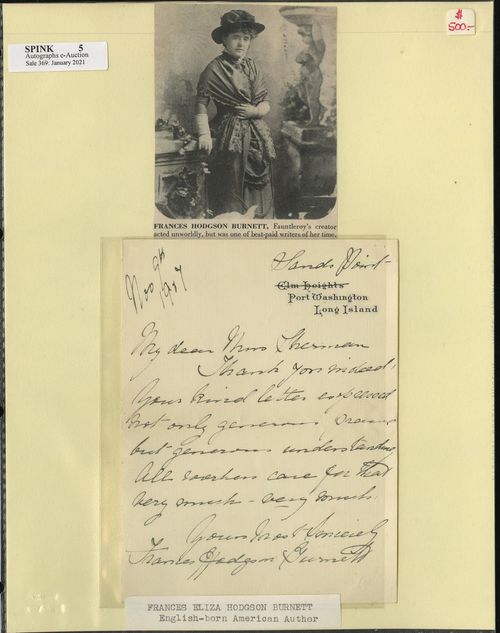 SPINK 5
Autographs e-Auction
Sale 369: January 2021
$
500.-
FRANCES HODGSON BURNETT, Fauntleroy's creator
acted unworldly, but was one of best-paid writers of her time.
Sands Point
Elm Heights
Port Washington
Long Island
Nov 9th
1907
My dear Miss Sherman
Thank you indeed.
Your kind letter expressed
not only generous praise
but generous understanding
All workers care for that
very much - very much.
Yours Most Sincerely
Frances Hodgson Burnett
FRANCES ELIZA HODGSON BURNETT
English-born American Author